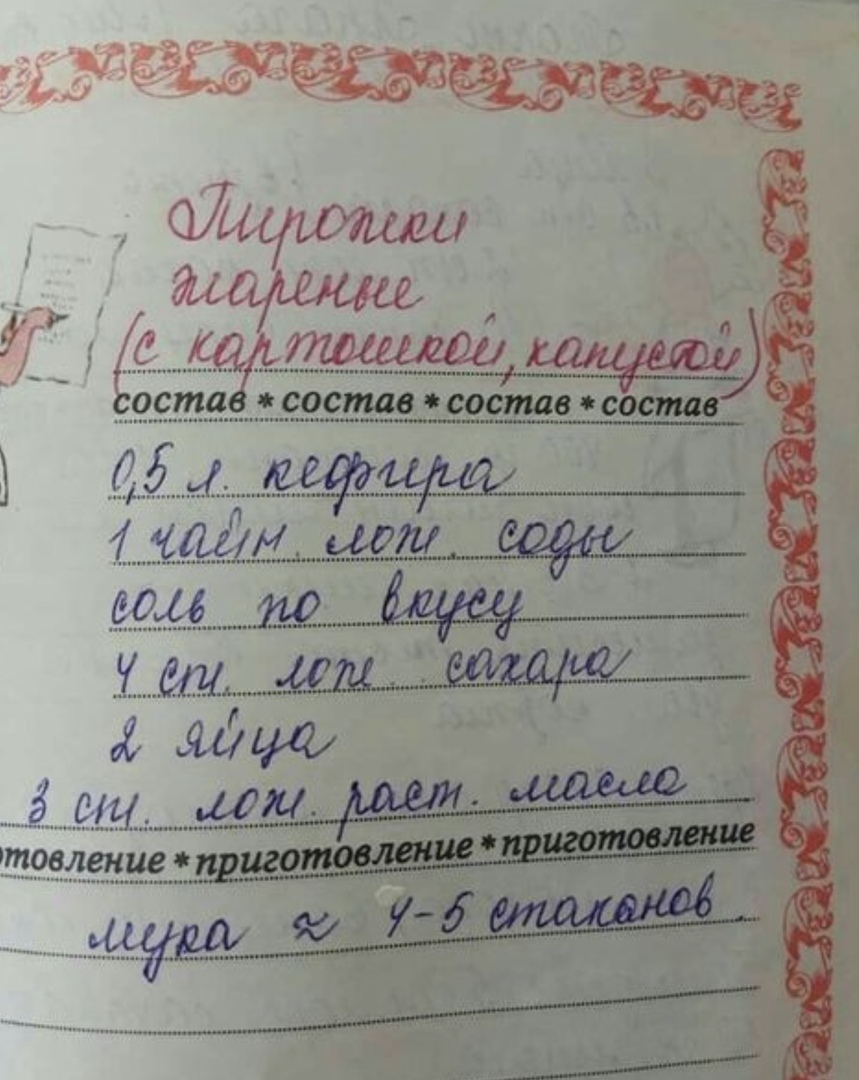 Пирожки
жареные
(с картошкой, капустой)
состав * состав * состав * состав
0,5 л. кефира
1 чайн. лож. соды
соль по вкусу
4 ст. лож. сахара
2 яйца
3 ст. лож. раст. масла
отовление * приготовление * приготовление
мука ≈ 4-5 стаканов.